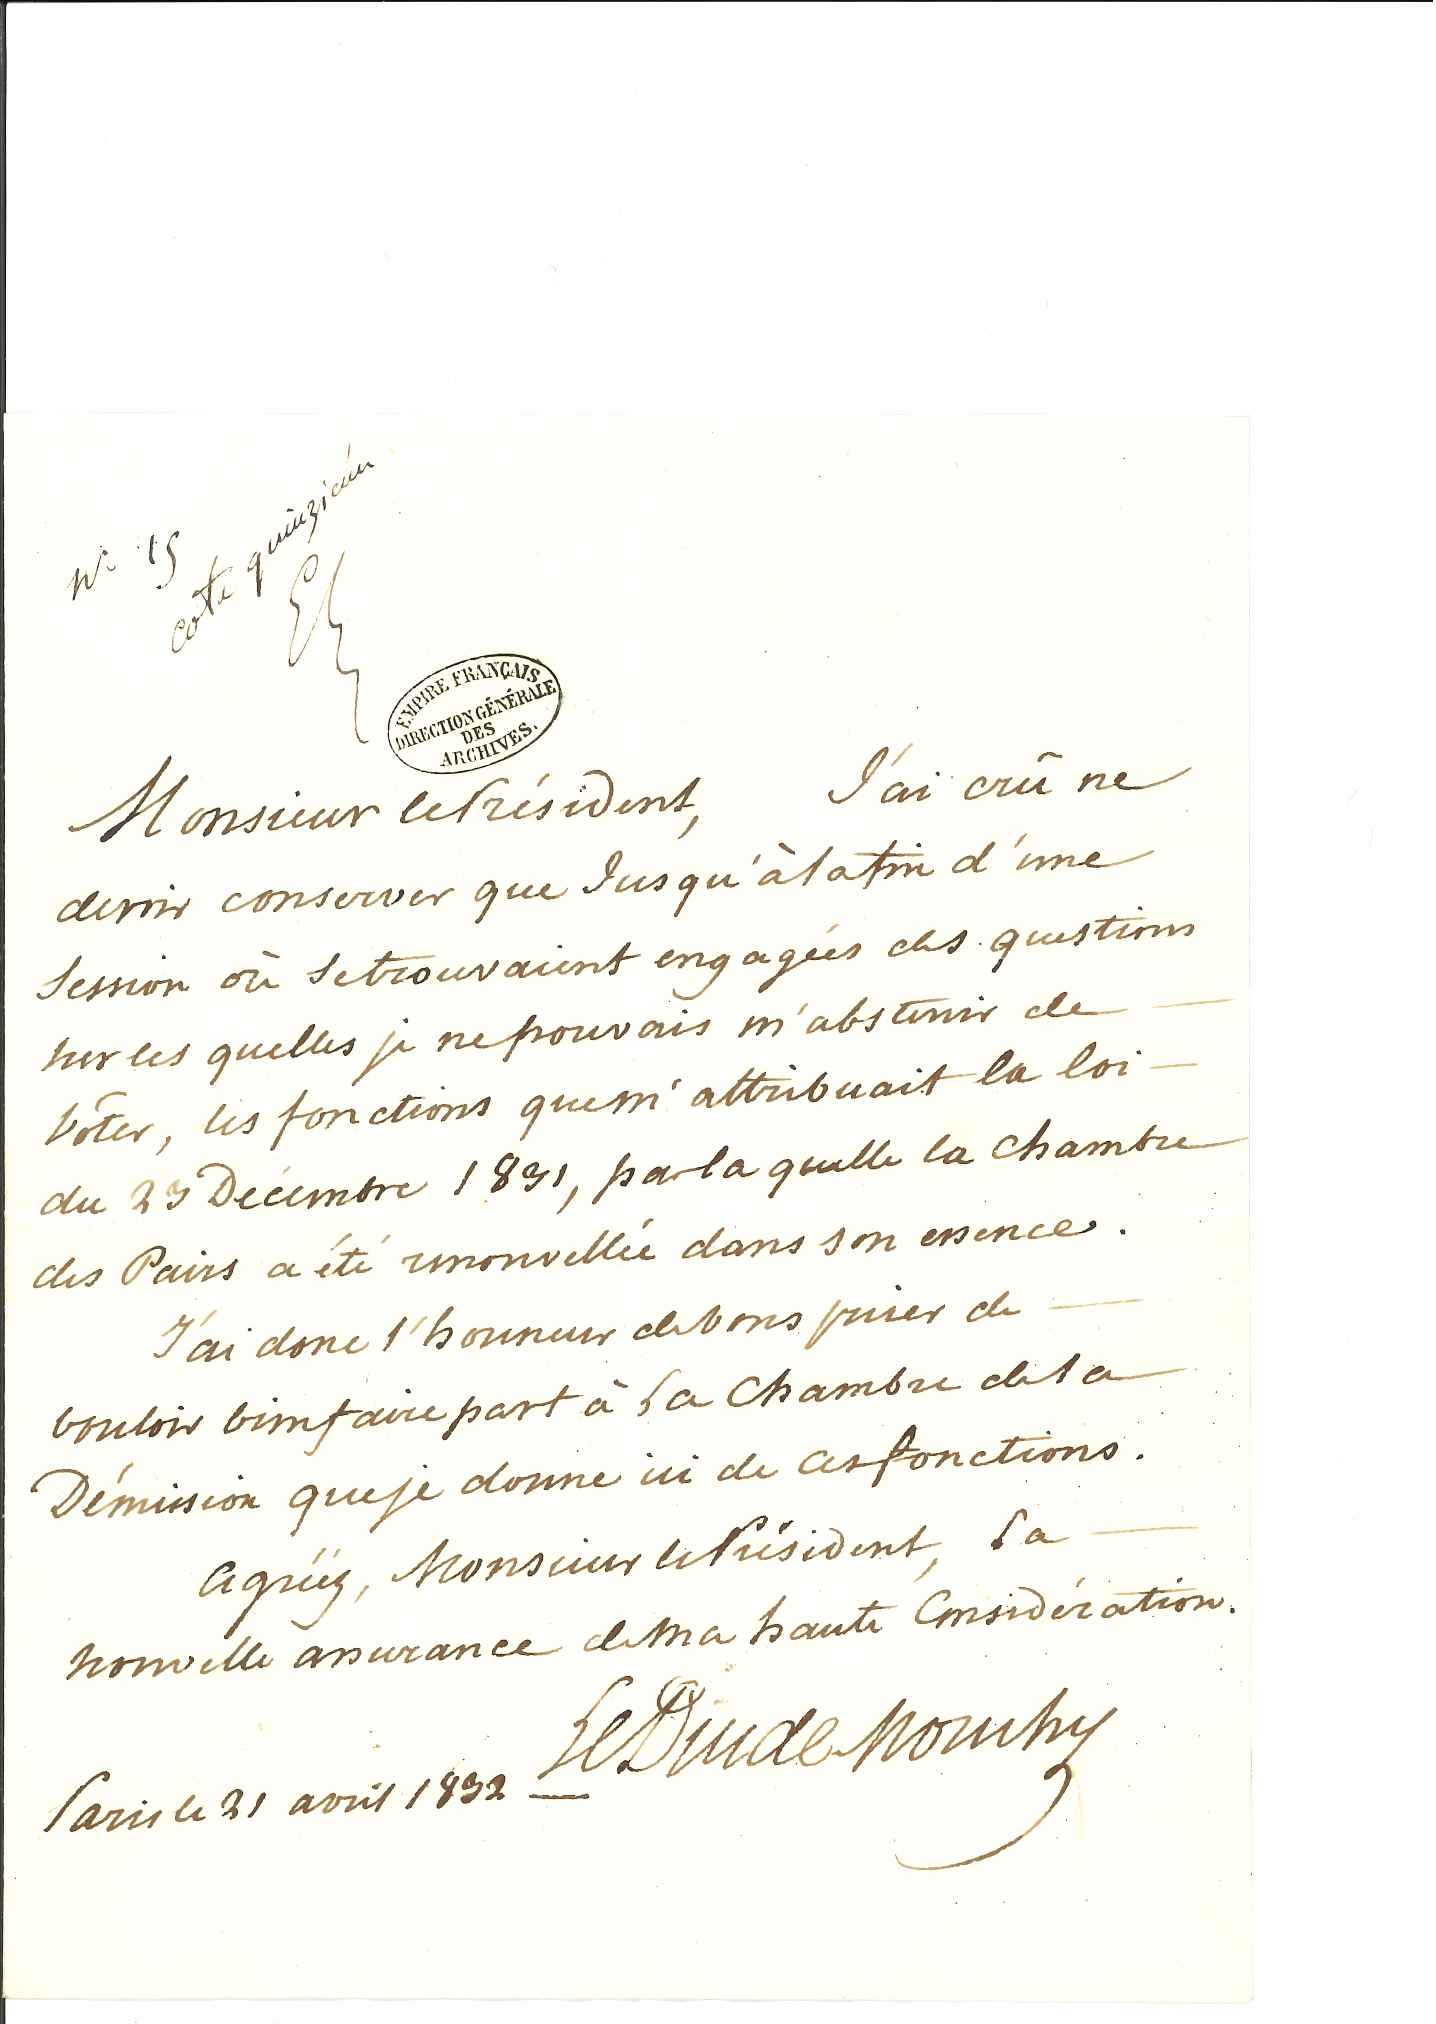 N.° 15
cote quinzieme
EMPIRE FRANÇAIS
DIRECTION GÉNÉRALE
DES
ARCHIVES.
Monsieur le Président, J'ai crû ne
devoir conserver que Jusqu'à la fin d'une
Session où se trouvaient engagées des questions
sur les quelles je ne pouvais m'abstenir de —
vôter, les fonctions que m'attribuait la loi —
du 29 Décembre 1831, par la quelle la Chambre
des Pairs a été renouvellée dans son essence.
J'ai donc l'honneur de vous prier de —
vouloir bien faire part à la Chambre de la
Démission que je donne ici de ces fonctions.
Agréez, Monsieur le Président, la —
nouvelle assurance de ma haute Considération.
Le Duc de Mouchy
Paris le 21 avril 1832 —